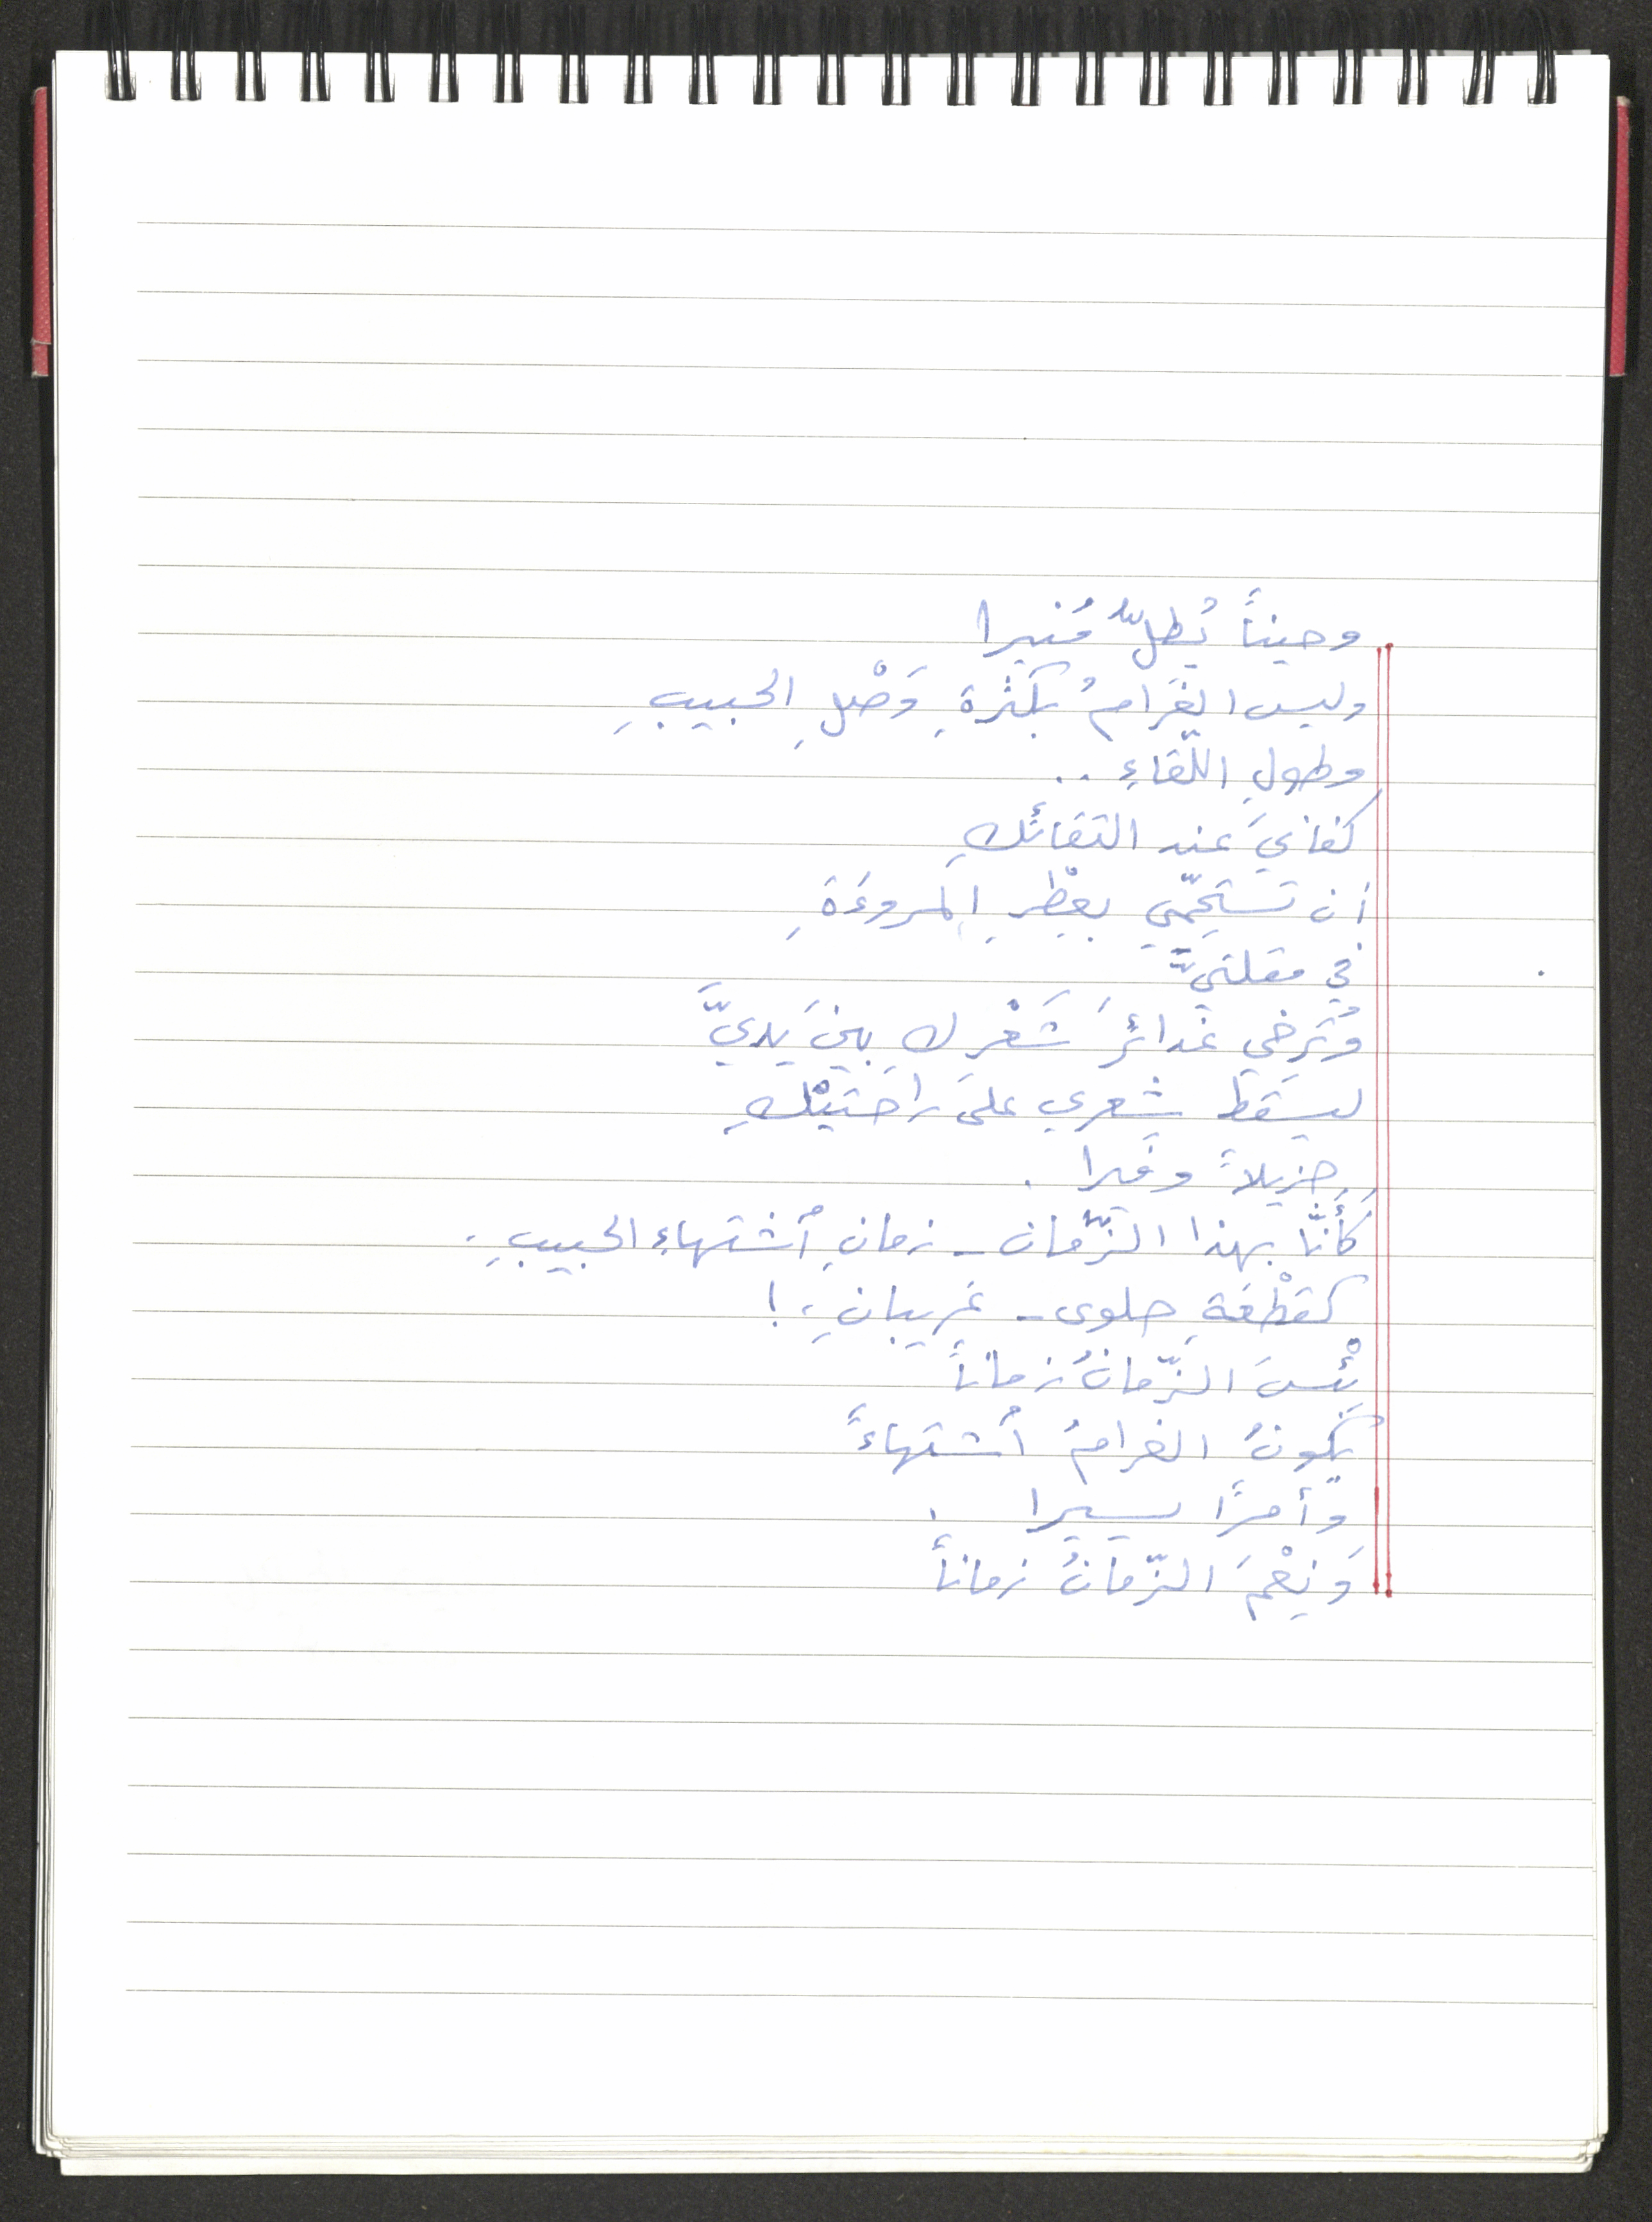 وحيناً يُطلّ مُنيرا
وليس الغَرامُ بكَثْرَةِ وَصْلِ الحبيبِ
وطولِ اللّقاءِ ..
كفانيَ عند التقائكِ
أن تستحِمّي بعِطْرِ المروءَةِ
في مقلتيَّ
وتُرخي غدائرَ شَعْرِك بينَ يديَّ
ليسقطَ شعري على رَاحَتَيْكِ
جزيلاً وفيرا .
كَأنَّا بهذا الزّمان - زمانِ اُشتهاءِ الحبيبِ .
كقطْعَةِ حلوى - غريبانِ . !
بِئْسَ الزّمانُ زماناً
يكونُ الغرامُ اُشتهاءً
وأمرًا يسيرا .
وَنِعْمَ الزّمانُ زماناً